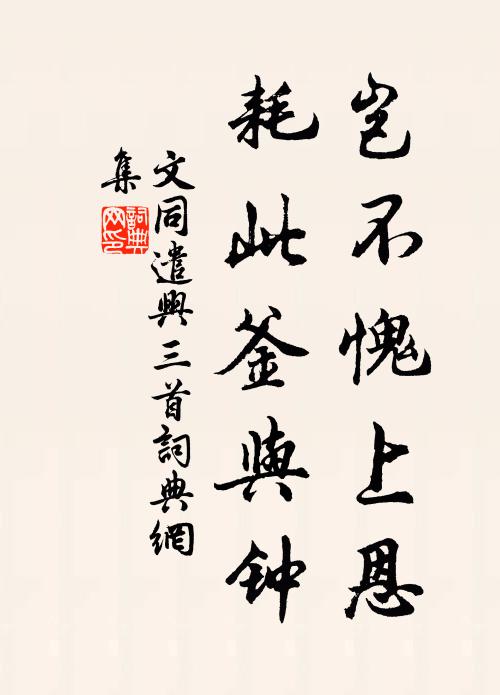 岂不愧上恩
耗此釜與钟
文同遣興三首詞典網
集
詞典
网印